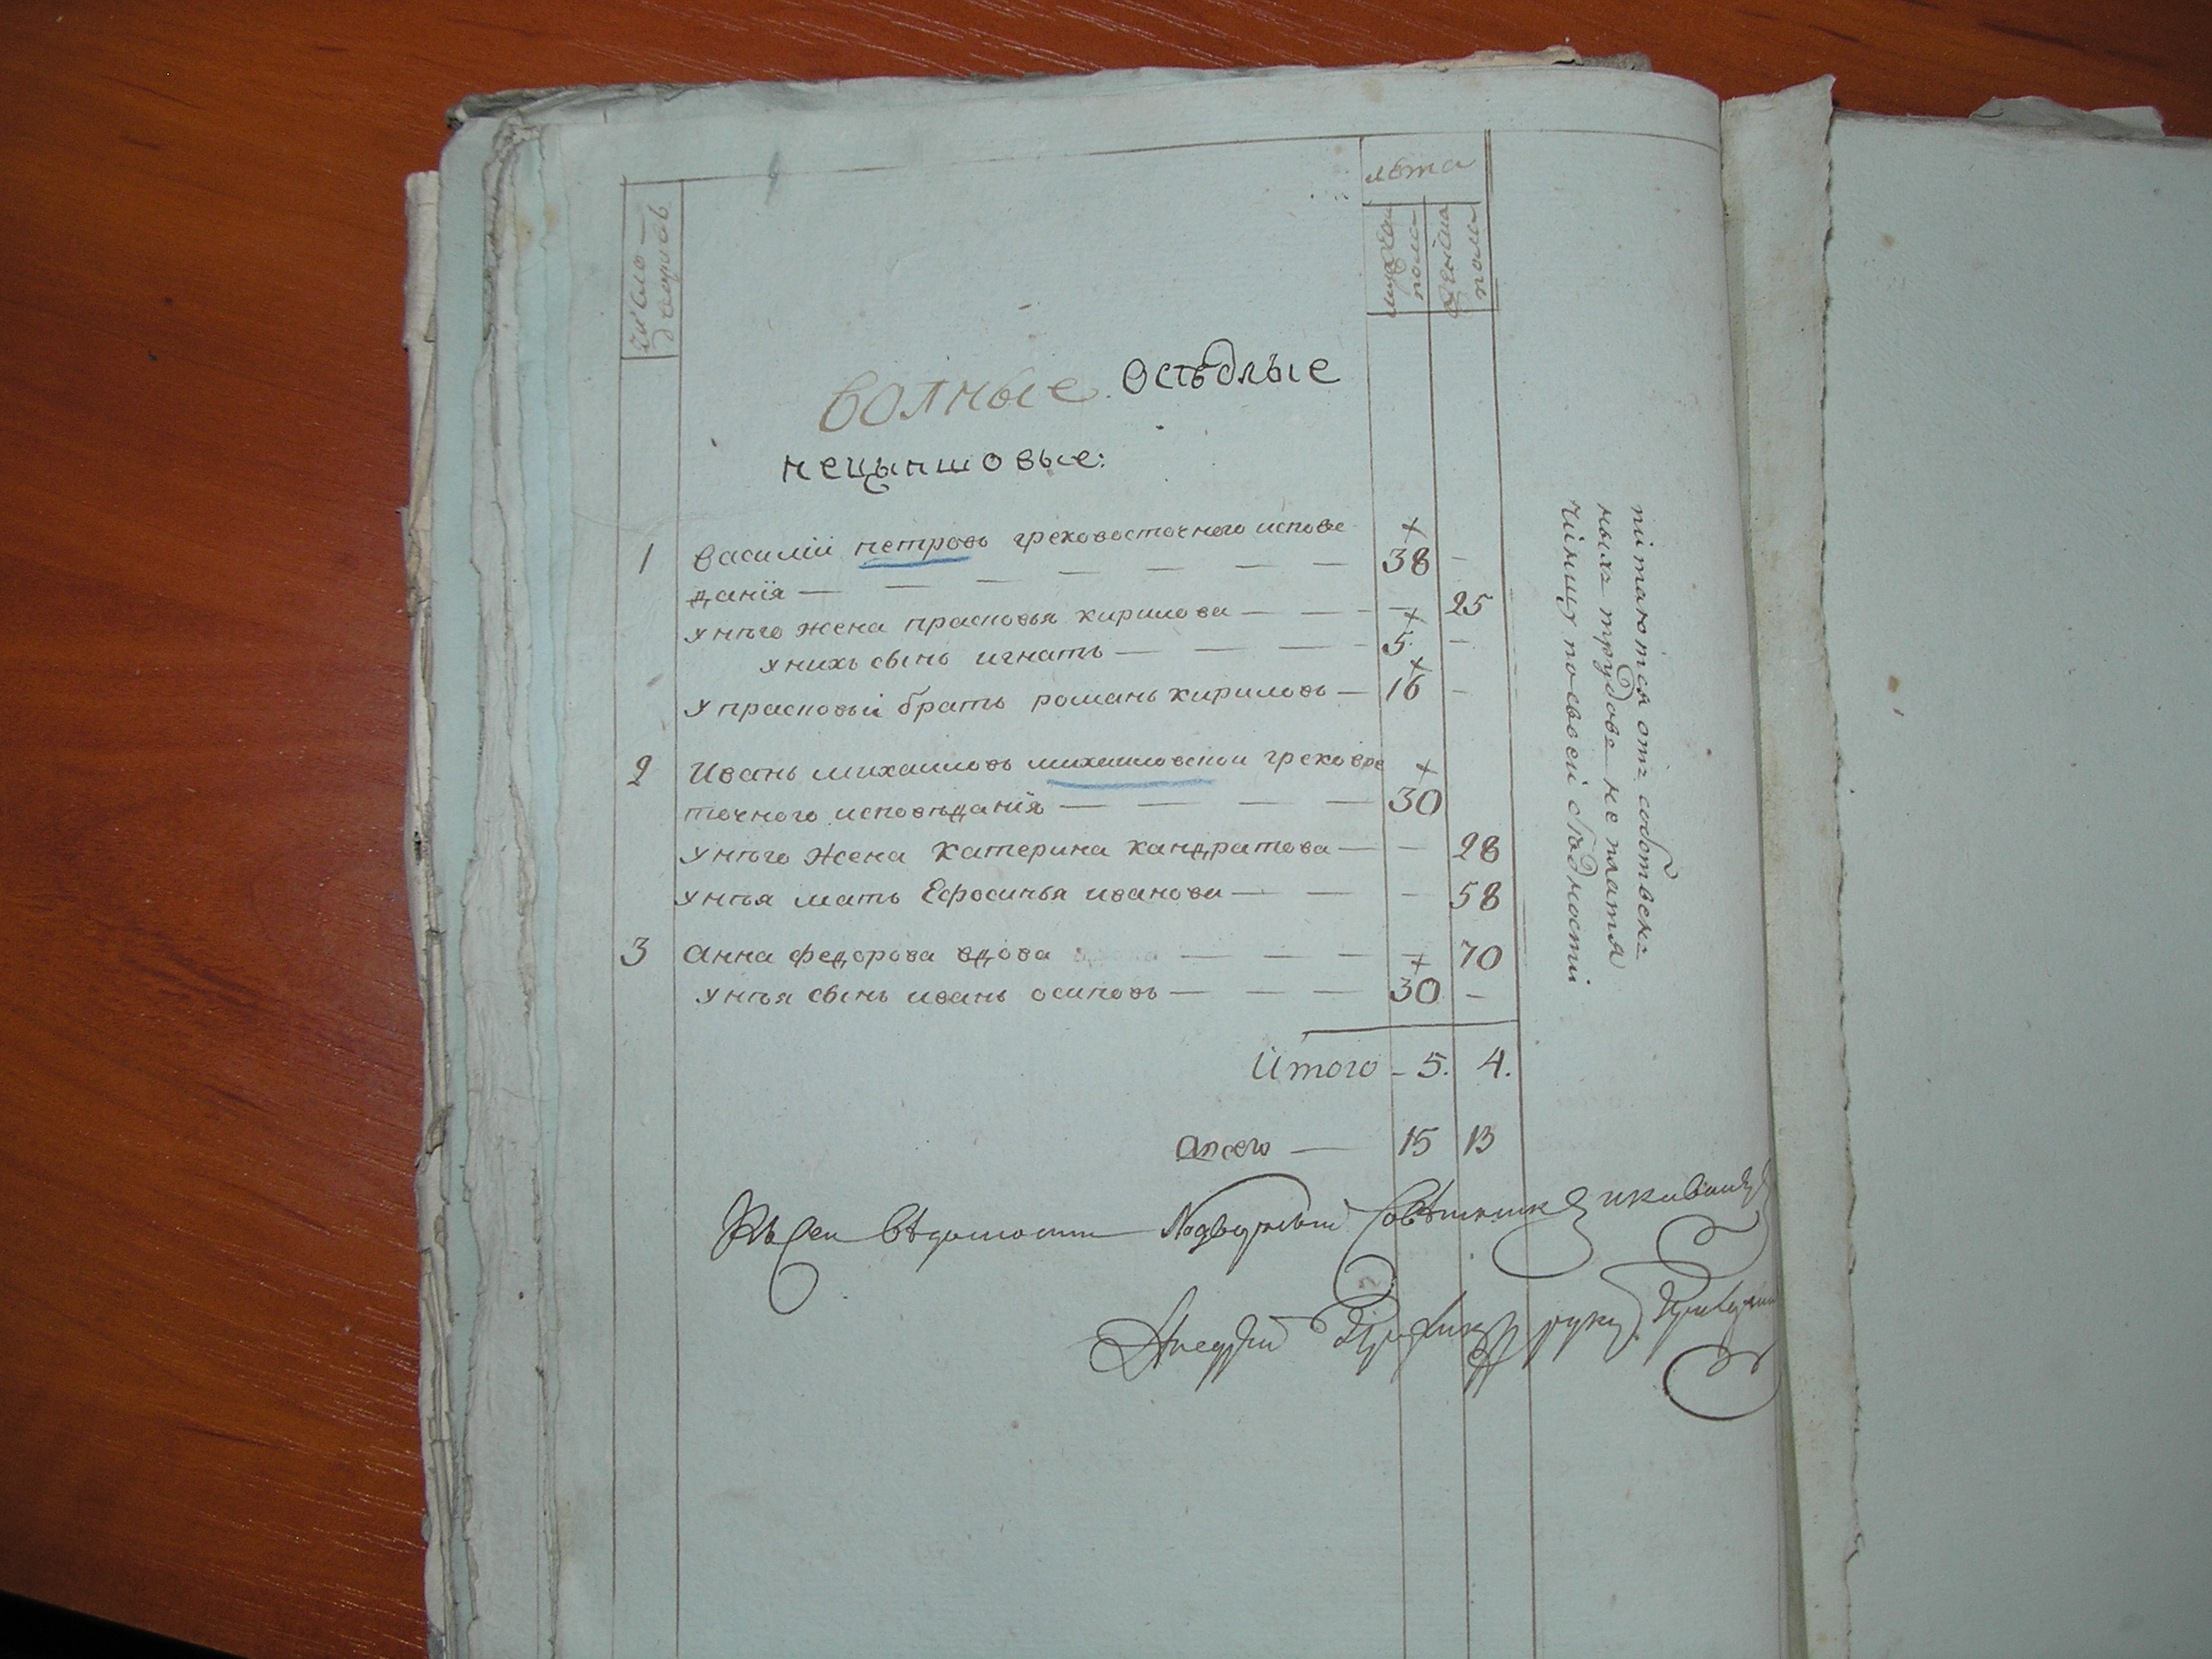 число дворовъ
лѣта
мужеска пола
женска пола
волные осѣдлые
нецыншовые:
1 василiй петровъ грековосточного испове 38 –
данiя
у него жена прасковья кирилова – 25
у нихъ сынъ игнатъ 5 –
у прасковьи братъ романъ кириловъ 16 –
2 Иванъ михаиловъ михаиловскои грековос
точного исповѣданiя 30
у него жена катерина кандратова – 28
у нея мать Ефросинья иванова – 58
3 анна федорова вдова – 70
у нея сынъ иванъ осиповъ 30 –
Итого – 5. 4.
а всего 15 13
питаются отъ собствен=
ныхъ трудовъ не платя
чиншу по своей бѣдности
Къ сей вѣдомости Надворный Совѣтникъ
руку